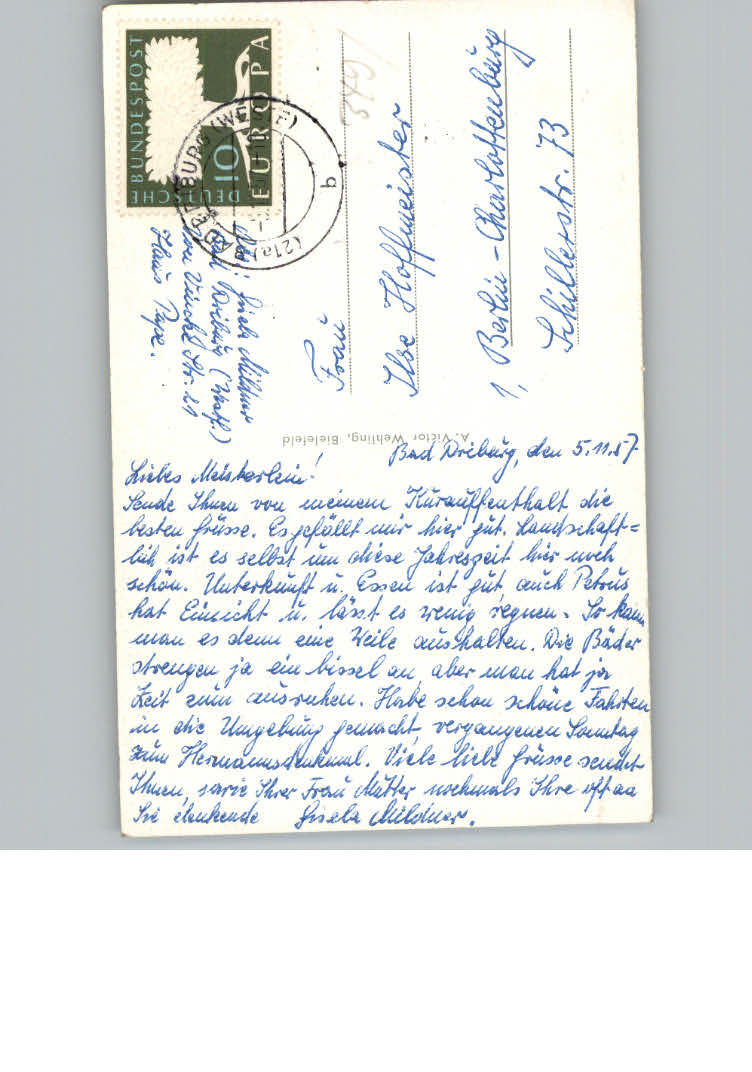 DEUTSCHE BUNDESPOST
10
EUROPA
(21a) BAD DRIBURG (WESTF)
b
349
Abs.: Gisela Mildner
Bad Driburg (Westf.)
von Vincke Str. 21
Haus Pape.
Frau
Ilse Hoffmeister
1, Berlin-Charlottenburg
Schillerstr. 73
A. Victor Wehling, Bielefeld
Bad Driburg, den 5.11.57.
Liebes Meisterlein!
Sende Ihnen von meinem Kurauffenthalt die
besten Grüsse. Es gefällt mir hier gut. Landschaft=
lich ist es selbst um diese Jahreszeit hier noch
schön. Unterkunft u. Essen ist gut, auch Petrus
hat Einsicht u. lässt es wenig regnen. So kann
man es denn eine Weile aushalten. Die Bäder
strengen ja ein bissel an, aber man hat ja
Zeit zum ausruhen. Habe schon schöne Fahrten
in die Umgebung gemacht, vergangenen Sonntag
zum Hermannsdenkmal. Viele liebe Grüsse sendet
Ihnen, sowie Ihrer Frau Mutter nochmals Ihre oft an
Sie denkende Gisela Mildner.